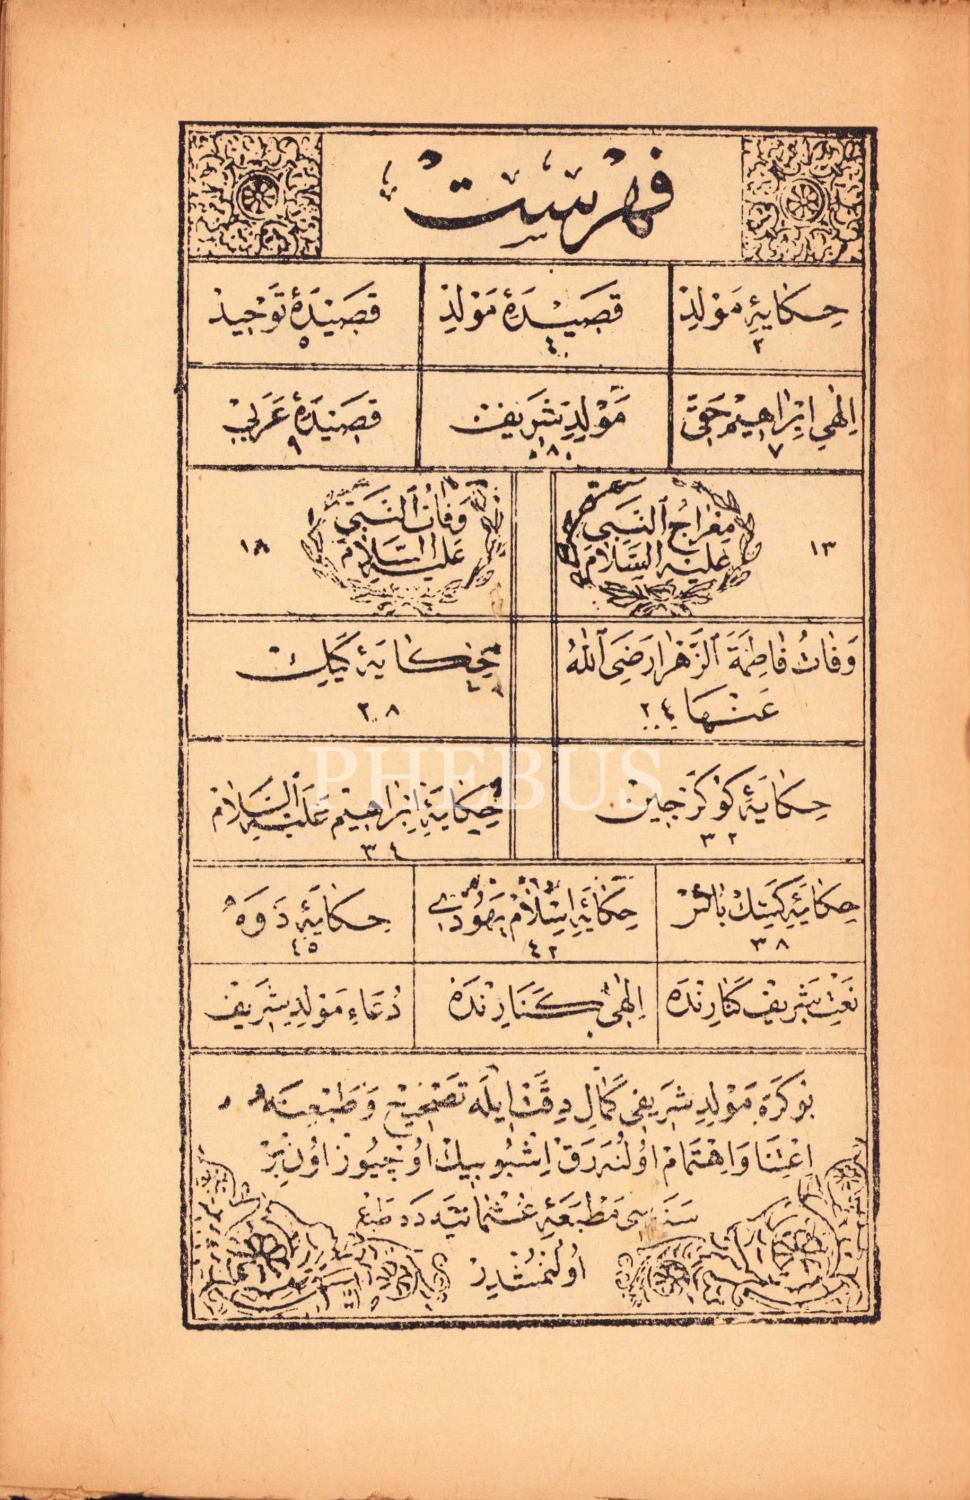 فهرست
حكايۀ مولد
٢
قصيدۀ مولد
٤
قصيدۀ توحيد
٥
الهى ابراهيم حقى
٧
مولد شريف
٨
قصيدۀ عربى
٩
معراج النبى
عليه السلام
١٣
وفات النبى
عليه السلام
١٨
وفات فاطمة الزهرا رضى الله
عنها ٢٤
حكايۀ كيك
٢٨
حكايۀ كوكرجين
٣٢
حكايۀ ابراهيم عليه السلام
٣٤
حكايۀ كسك باش
٣٨
حكايۀ اسلام يهودى
٤٢
حكايۀ دوه
٤٥
نعت شريف كنارنده
الهى كنارنده
دعاء مولد شريف
بو كره مولد شريفى كمال دقت ايله تصحيح و طبعنه
اعتنا و اهتمام اولنه رق اشبو بيك اوچيوز اون بر
سنه سى مطبعۀ عثمانيه ده طبع
اولنمشدر
PHEBUS